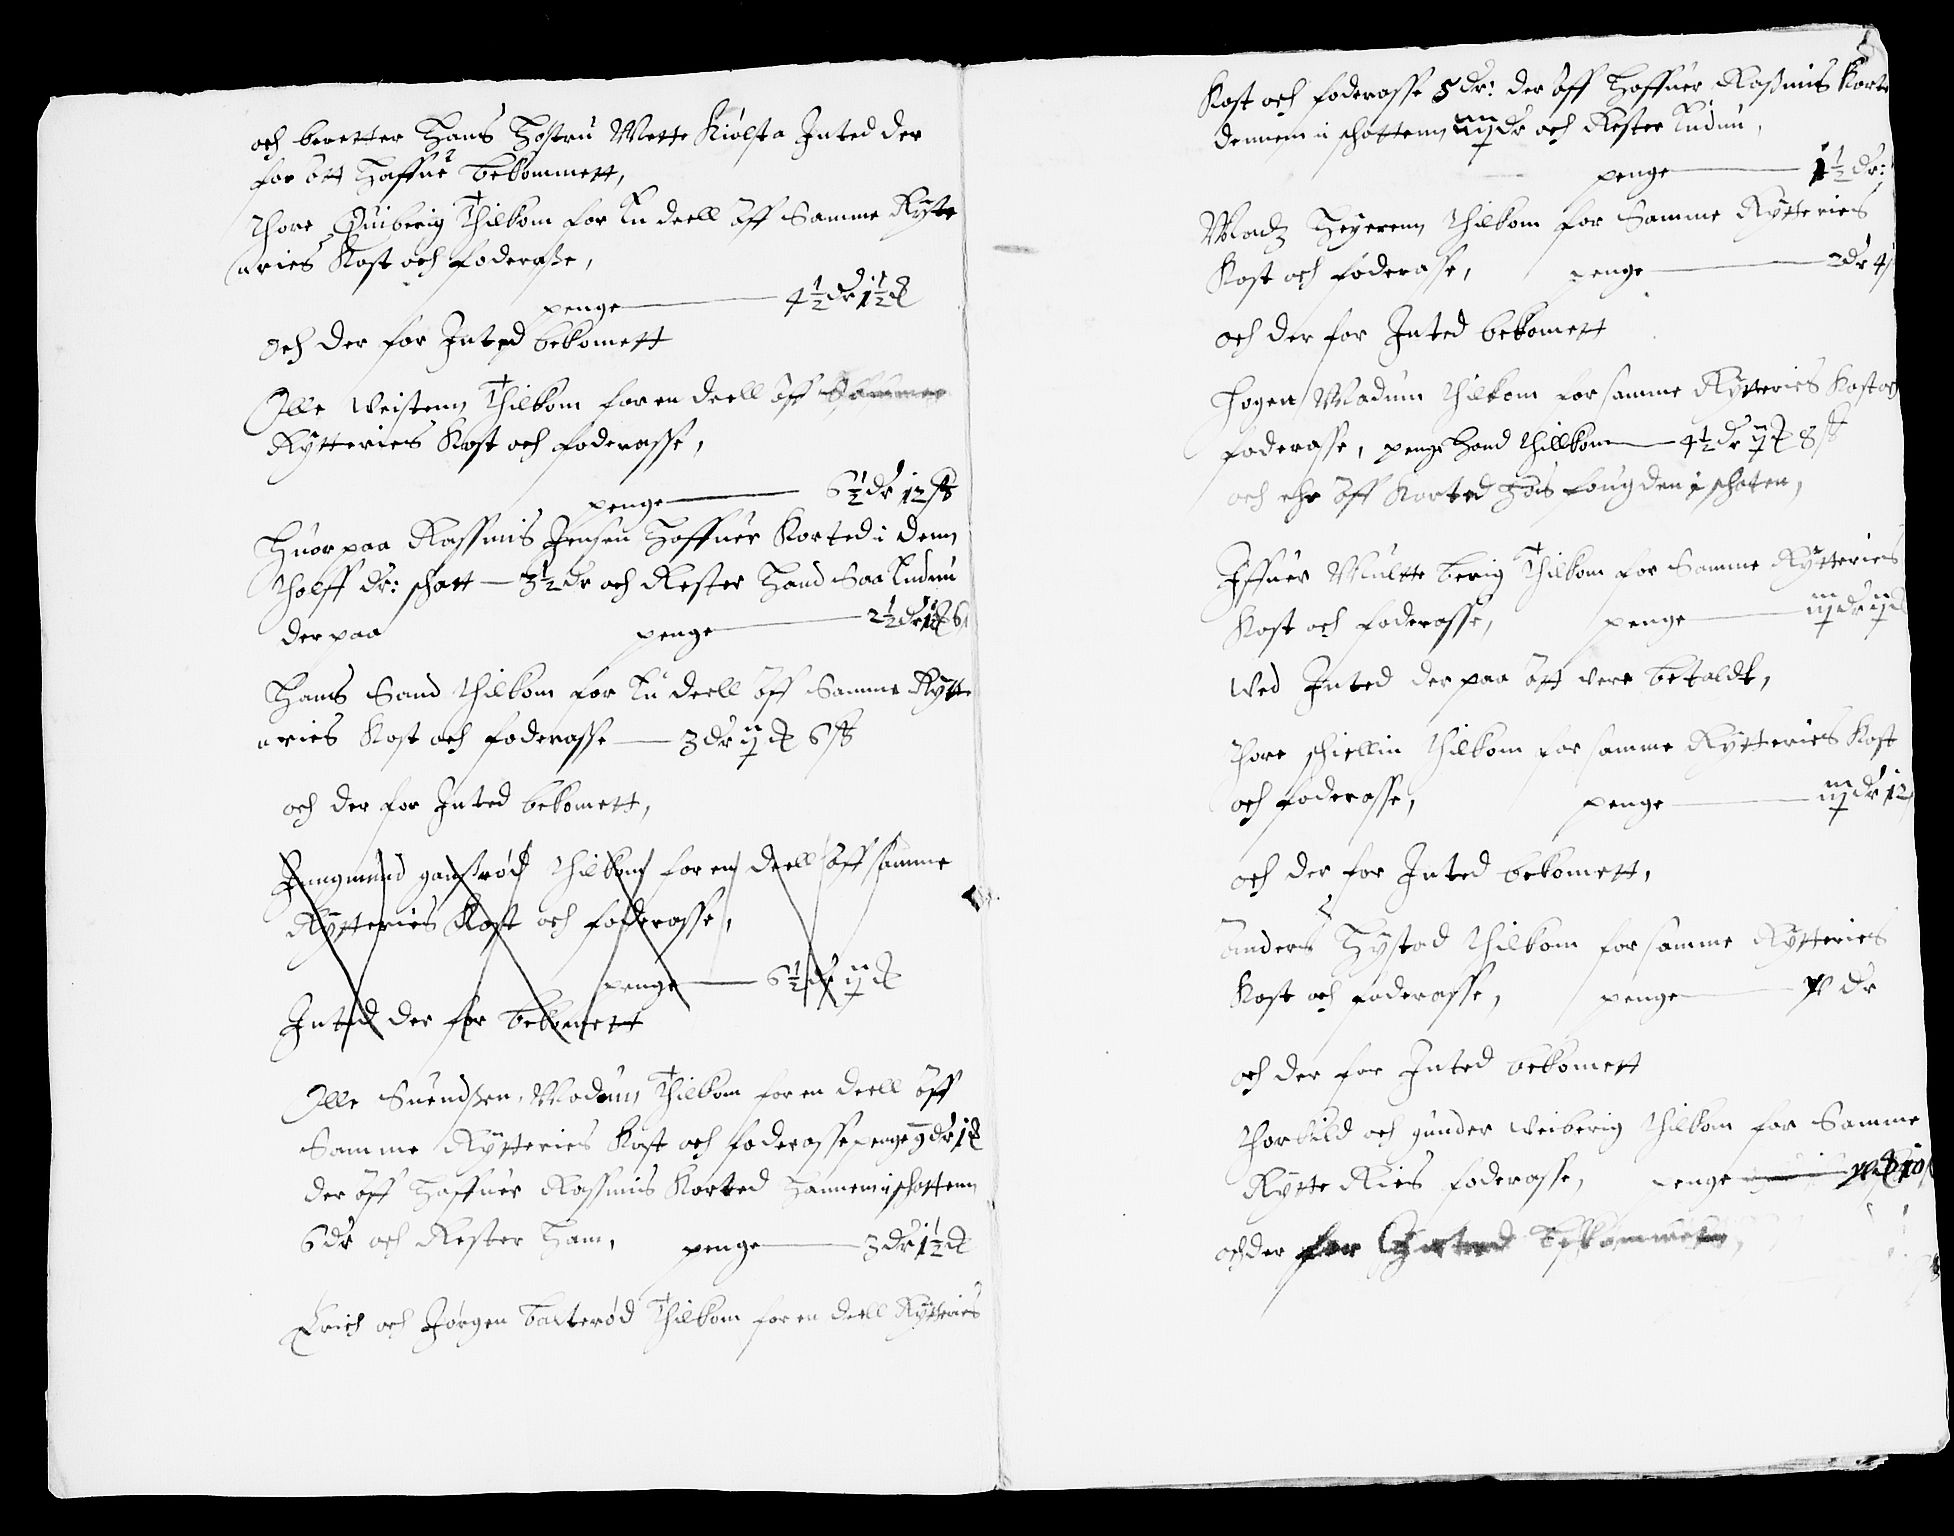 och beretter Hans Høstru Mette Kiølsta Inted der
for att Haffue bekommett,
Thore Quiberig Thilkom for En deell Aff Samme Rytte
ries Kost och foderasse,
penge — 4½ dr 1½ ℔
Och der for Inted bekomett
Olle Veistenn Thilkom for en deell aff Samme
Rytteries Kost och foderasse,
penge — 6½ dr 12 ß
Huor paa Rassmis Jensen Haffuer Korted i denn
Tholff dr: schatt — 3½ dr och Rester Hand Saa Endnu
der paa penge — 2½ dr 1 ℔ 6
Hans Sand Thilkom for En deell Aff Samme Rytte
ries Kost och foderasse — 3 dr ij ℔ 6 ß
och der for Inted bekomett,
Rytteries Kost och foderasse,
penge — 6½ dr ij ℔
Inted der for bekomett
Olle Suendsen Modum Thilkom for en deell Aff
Samme Rytteries Kost och foderasse penge 9 dr 1 ℔
der Aff Haffuer Rassmis Korted Hannem i schattenn
6 dr och Rester Ham, penge — 3 dr 1½ ℔
Erich och Jørgen Balterød Thilkom for en deell Rytteries
Kost och foderasse 5 dr: der Aff Haffuer Rasmis Korte
dennem i schattenn iiij dr och Rester Endnu,
penge — 1½ dr:
Madz Heyerenn Thilkom for Samme Rytteries
Kost och foderasse, penge — 2 dr 4
och der for Inted bekomett
Modum Thilkom for samme Rytteries Kost oc
foderasse, penge Hand Thillkom — 4½ dr ij ℔ 8 ß
och ehr Aff Korted Hos fougden i schaten,
Iffuer Multte berig Thilkom for Samme Rytteries
Kost och foderasse, penge — iiij dr ij ℔
Ved Inted der paa Att vere betaldt,
Thore schiellin Thilkom for samme Rytteries Kost
och foderasse, penge — iiij dr 12
och der for Inted bekomett,
Anders Hystad Thilkom for samme Rytteries
Kost och foderasse, penge — V dr
och der for Inted bekomett
Thorkild och gunder Veiberig Thilkom for Samme
Rytte Ries foderasse, penge —
och der for Inted bekommett,